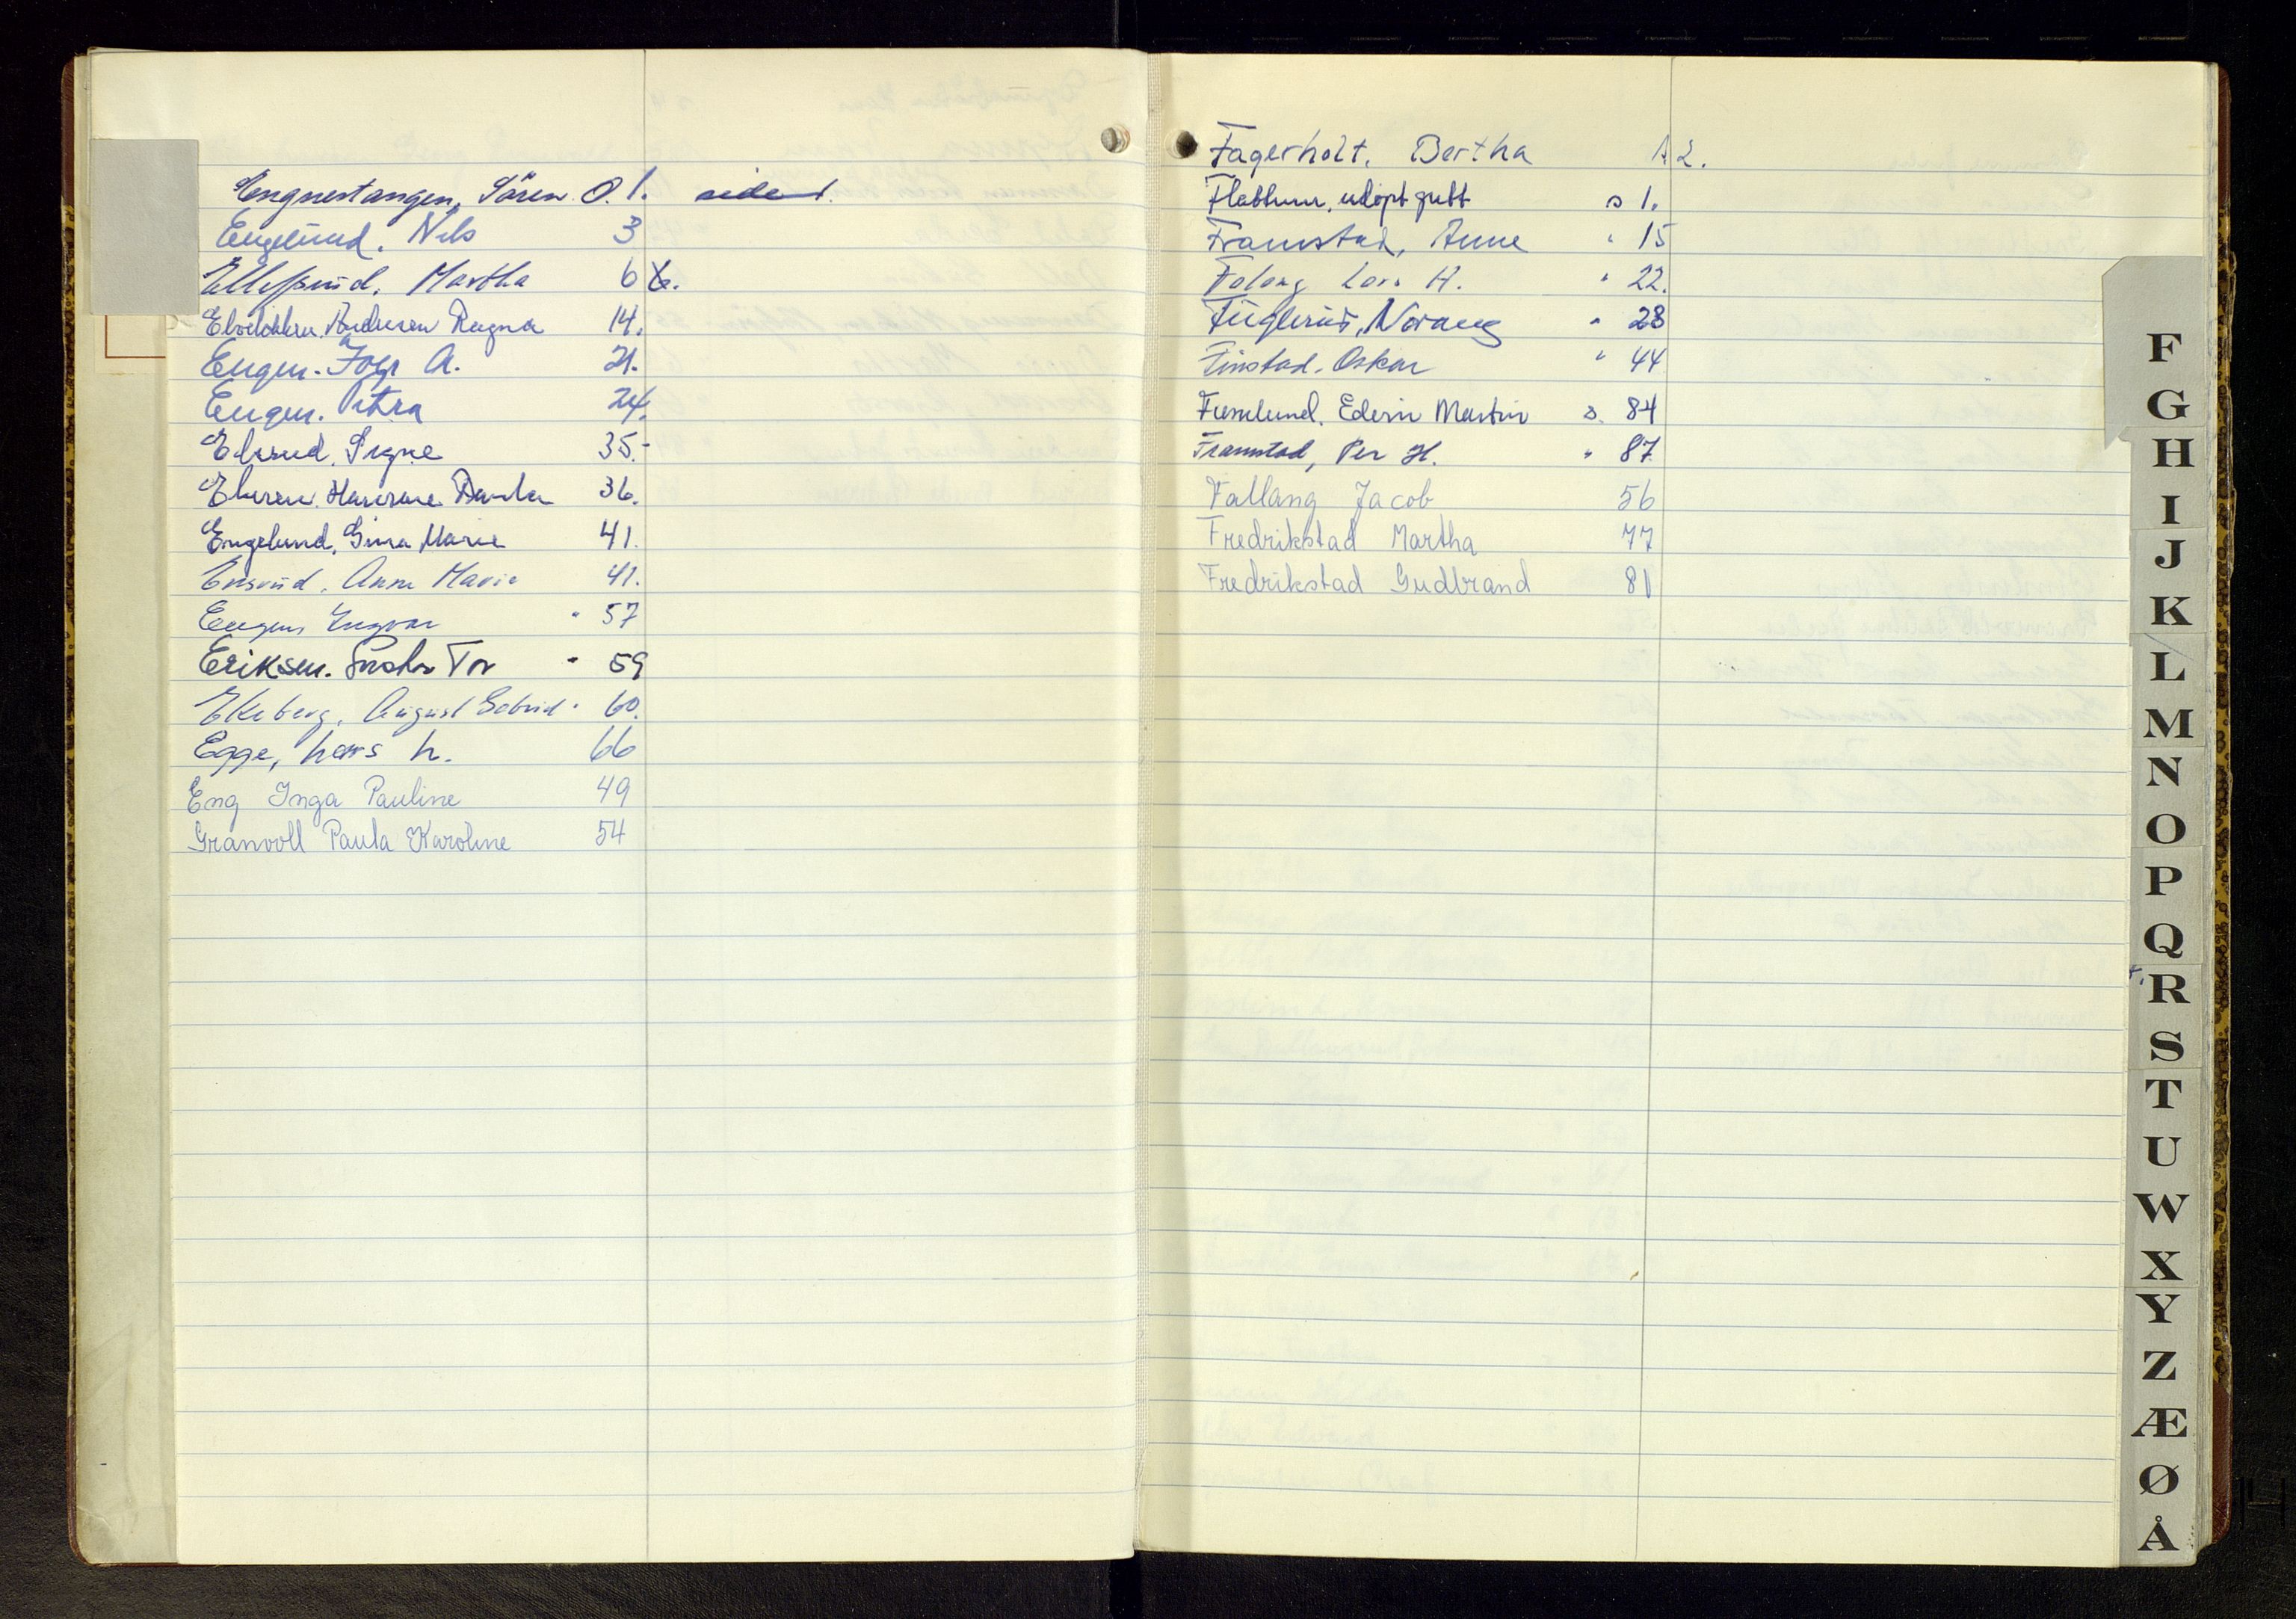 Engnestangen, Sören O. 1. side 1.
Engelund. Nils 3
Ellefsrud. Martha 6
Andersen Ragna 14.
Engen. A. 21.
Engen. Petra 24.
Elsrud, Signe 35.-
Hansine Paula 36.
Engelund, Gina Marie 41.
Ensrud, Anne Marie 41.
Engen, Yngvar " 57
Eriksen. Tor " 59
Ekeberg, August " 60.
Egge, hans h. 66
Eng Inga Pauline 49
Granvoll Paula Karoline 54
Fagerholt, Bertha 2.
Flattum, udöpt gutt s 1.
Framstad, Anne " 15
Folang Lars H. " 22.
Fuglerud, Noraug " 28
Finstad. Oskar " 44
Edvin Martin s. 84
Framstad, Per H. " 87
Fallang Jacob 56
Fredrikstad Martha 77
Fredrikstad Gudbrand 81
F
G
H
I
J
K
L
M
N
O
P
Q
R
S
T
U
W
X
Y
Z
Æ
Ø
Å